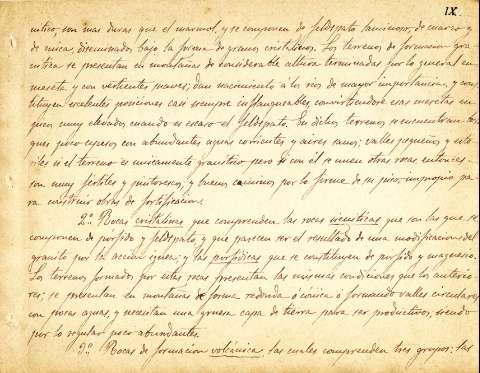 IX.
nitico son mas duras que el marmol, y se componen de feldspato laminoso, de cuarzo y
de mica, diseminados bajo la forma de granos cristalinos. Los terrenos de formacion gra-
nitica se presentan en montañas de considerable altura terminadas por lo general en
meseta y con vertientes suaves; dan nacimiento á los rios de mayor importancia, y cons
tituyen excelentes posiciones casi siempre infranqueables convirtiendose esas mesetas en
picos muy elevados cuando es escaso el feldspato. En dichos terrenos se encuentran bos-
ques poco espesos con abundantes aguas corrientes y aires sanos; valles pequeños y esté-
riles si el terreno es unicamente granitico pero si con el se unen otras rocas entonces
son muy fértiles y pintorescos, y buenos caminos por lo firme de su piso; impropio pa-
ra construir obras de fortificacion.
2º Rocas cristalinas que comprenden las rocas sieniticas que son las que se
componen de pórfido y feldspato, y que parecen ser el resultado de una modificacion del
granito por la accion ignea; y las porfidicas que se constituyen de porfido y magnesio.
Los terrenos formados por estas rocas presentan las mismas condiciones que los anterio-
res; se presentan en montañas de forma redonda ó cónica ó formando valles circulares
con pocas aguas, y necesitan una gruesa capa de tierra para ser productivos, siendo
por lo regular poco abundantes.
3º Rocas de formacion volcánica, las cuales comprenden tres grupos; las